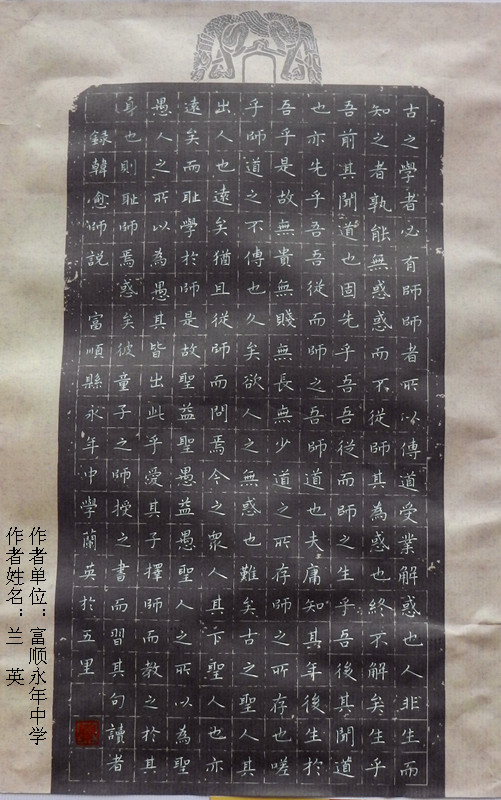 古之學者必有師師者所以傳道受業解惑也人非生而
知之者孰能無惑惑而不從師其為惑也終不解矣生乎
吾前其聞道也固先乎吾吾從而師之生乎吾後其聞道
也亦先乎吾吾從而師之吾師道也夫庸知其年後生於
吾乎是故無貴無賤無長無少道之所存師之所存也嗟
乎師道之不傳也久矣欲人之無惑也難矣古之聖人其
出人也遠矣猶且從師而問焉今之衆人其下聖人也亦
遠矣而耻學於師是故聖益聖愚益愚聖人之所以為聖
愚人之所以為愚其皆出此乎愛其子擇師而教之於其
身也則耻師焉惑矣彼童子之師授之書而習其句讀者
錄韓愈師說 富順縣永年中學蘭英於五里
作者单位：富顺永年中学
作者姓名：兰 英